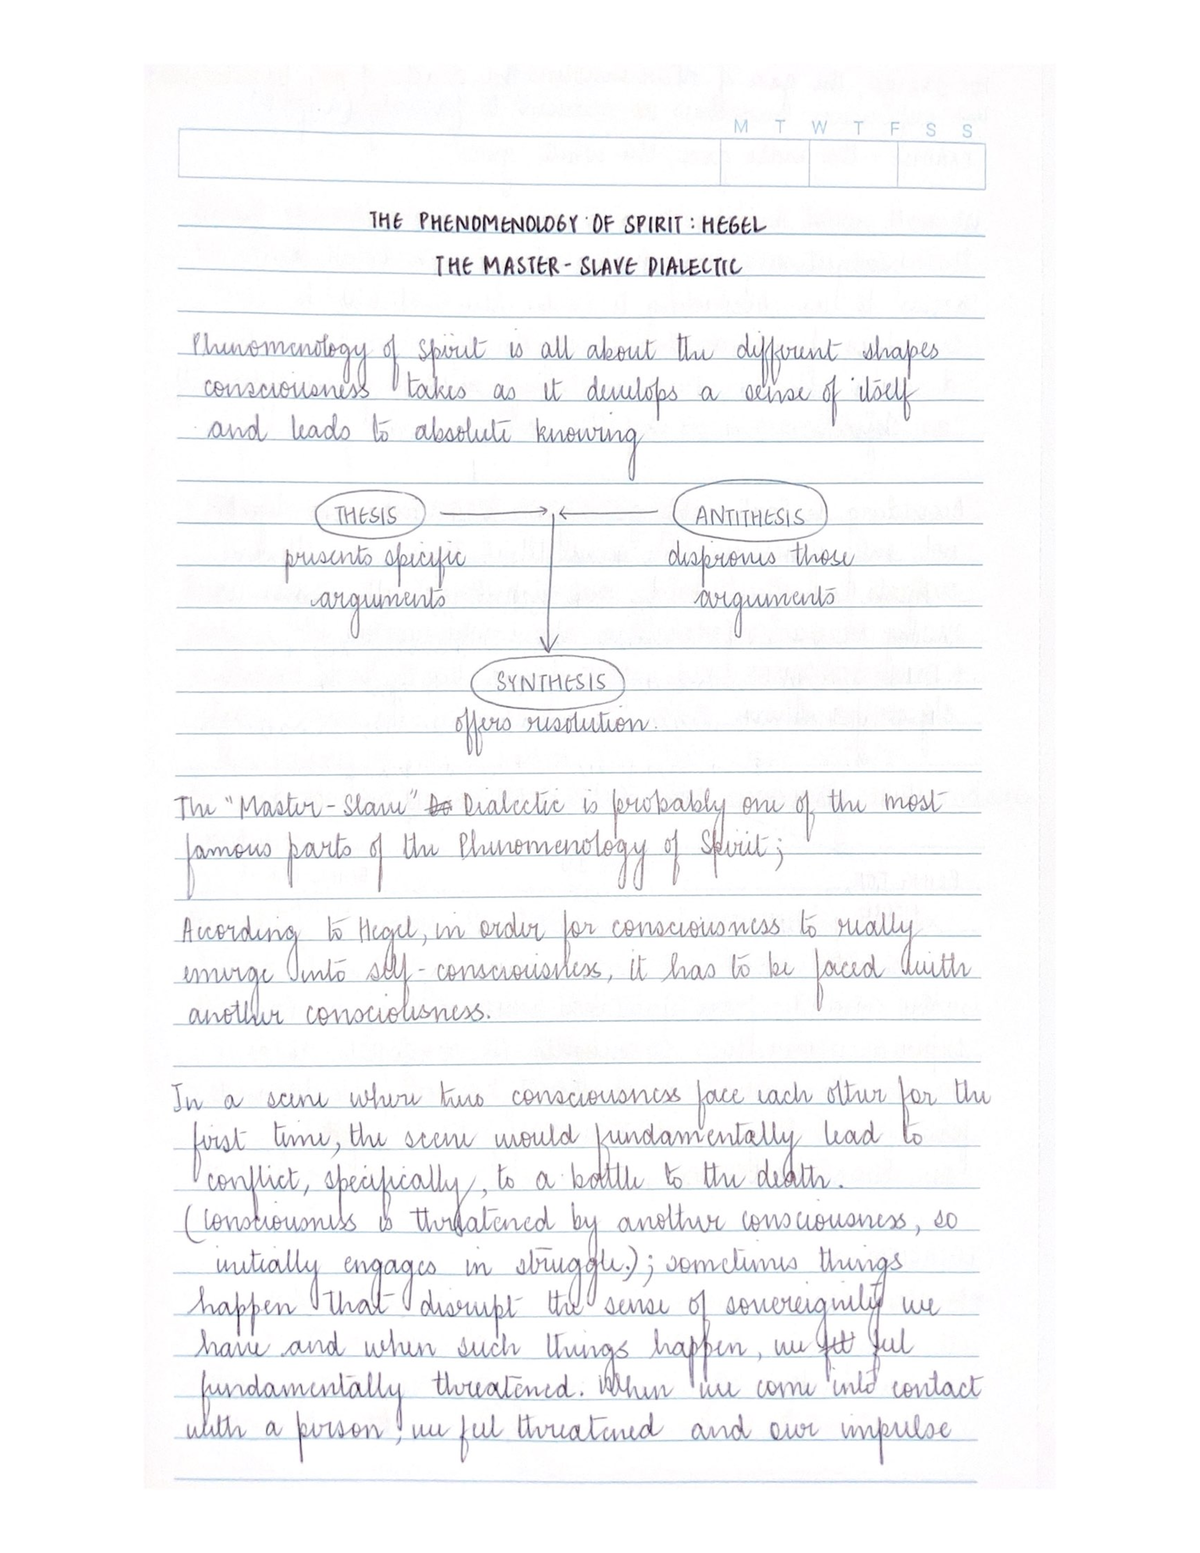 M T W T F S S
THE PHENOMENOLOGY OF SPIRIT : HEGEL
THE MASTER - SLAVE DIALECTIC
Phenomenology of Spirit is all about the different shapes
consciousness takes as it develops a sense of itself
and leads to absolute knowing
THESIS
ANTITHESIS
presents specific
disproves those
arguments
arguments
SYNTHESIS
offers resolution.
The "Master-Slave" Dialectic is probably one of the most
famous parts of the Phenomenology of Spirit;
According to Hegel, in order for consciousness to really
emerge into self-consciousness, it has to be faced with
another consciousness.
In a scene where two consciousness face each other for the
first time, the scene would fundamentally lead to
conflict, specifically, to a battle to the death.
(Consciousness is threatened by another consciousness, so
initially engages in struggle.); sometimes things
happen that disrupt the sense of sovereignity we
have and when such things happen, we feel
fundamentally threatened. When we come into contact
with a person, we feel threatened and our impulse